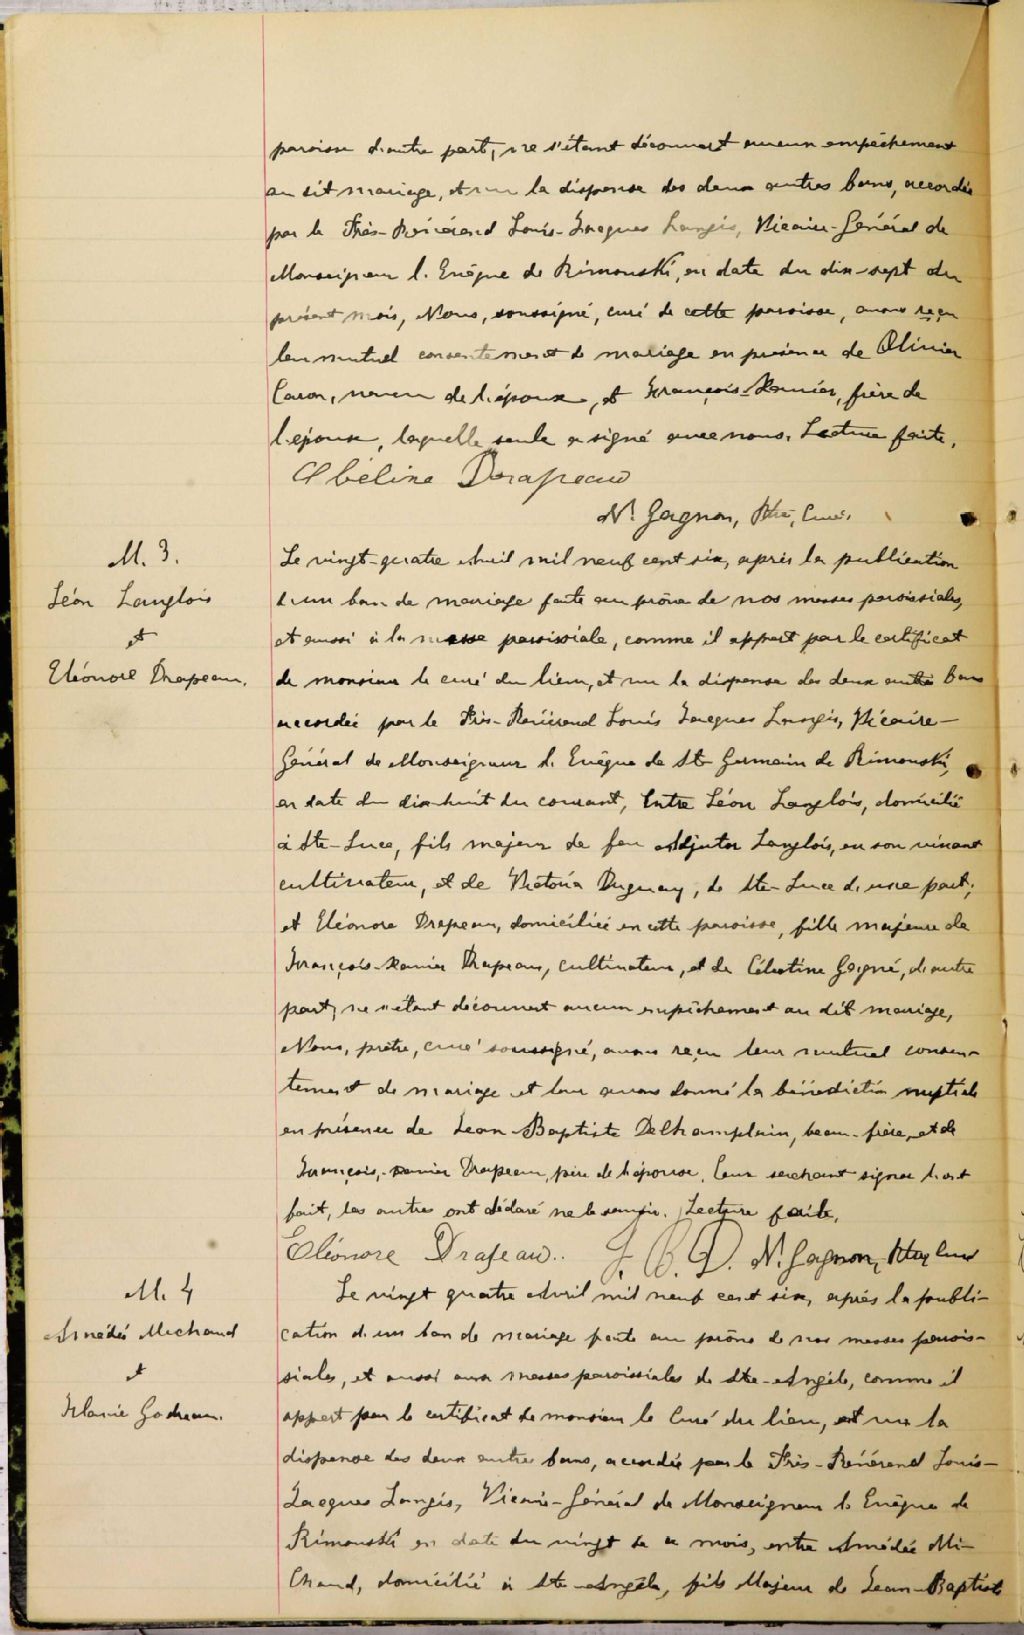 paroisse d'autre part, ne s'étant découvert aucun empêchement
au dit mariage, et vu la dispense des deux autres bans, accordée
par le Très-Révérend Louis-Jacques Langis, Vicaire-Général de
Monseigneur l'Evêque de Rimouski, en date du dix-sept du
présent mois, Nous, soussigné, curé de cette paroisse, avons reçu
leur mutuel consentement de mariage en présence de Olivier
Caron, neveu de l'époux, et François-Xavier, frère de
l'épouse, laquelle seule a signé avec nous. Lecture faite.
Abélina Drapeau
N. Gagnon, Ptre, Curé.
M. 3.
Léon Langlois
et
Eléonore Drapeau.
Le vingt-quatre Avril mil neuf cent six, après la publication
d'un ban de mariage faite au prône de nos messes paroissiales,
et aussi à la messe paroissiale, comme il appert par le certificat
de monsieur le curé du lieu, et vu la dispense des deux autres bans
accordée par le Très-Révérend Louis Jacques Langis, Vicaire-
Général de Monseigneur l'Evêque de St Germain de Rimouski,
en date du dix-huit du courant, Entre Léon Langlois, domicilié
à Ste-Luce, fils majeur de feu Adjutor Langlois, en son vivant
cultivateur, et de Victoria Duguay, de Ste-Luce d'une part;
et Eléonore Drapeau, domiciliée en cette paroisse, fille majeure de
François-Xavier Drapeau, cultivateur, et de Célestine Gagné, d'autre
part, ne s'étant découvert aucun empêchement au dit mariage,
Nous, prêtre, curé soussigné, avons reçu leur mutuel consen-
tement de mariage et leur avons donné la bénédiction nuptiale
en présence de Jean-Baptiste DeChamplain, beau-frère, et de
François-Xavier Drapeau, père de l'épouse. Ceux sachant signer l'ont
fait, les autres ont déclaré ne le savoir. Lecture faite.
Eléonore Drapeau. J. B. D. N. Gagnon, Ptre, Curé
M. 4
Amédée Michaud
et
Marie Godreau.
Le vingt quatre Avril mil neuf cent six, après la publi-
cation d'un ban de mariage faite au prône de nos messes parois-
siales, et aussi aux messes paroissiales de Ste-Angèle, comme il
appert par le certificat de monsieur le Curé du lieu, et vu la
dispense des deux autres bans, accordée par le Très-Révérend Louis-
Jacques Langis, Vicaire-Général de Monseigneur l'Evêque de
Rimouski en date du vingt de ce mois, entre Amédée Mi-
chaud, domicilié à Ste-Angèle, fils Majeur de Jean-Baptiste